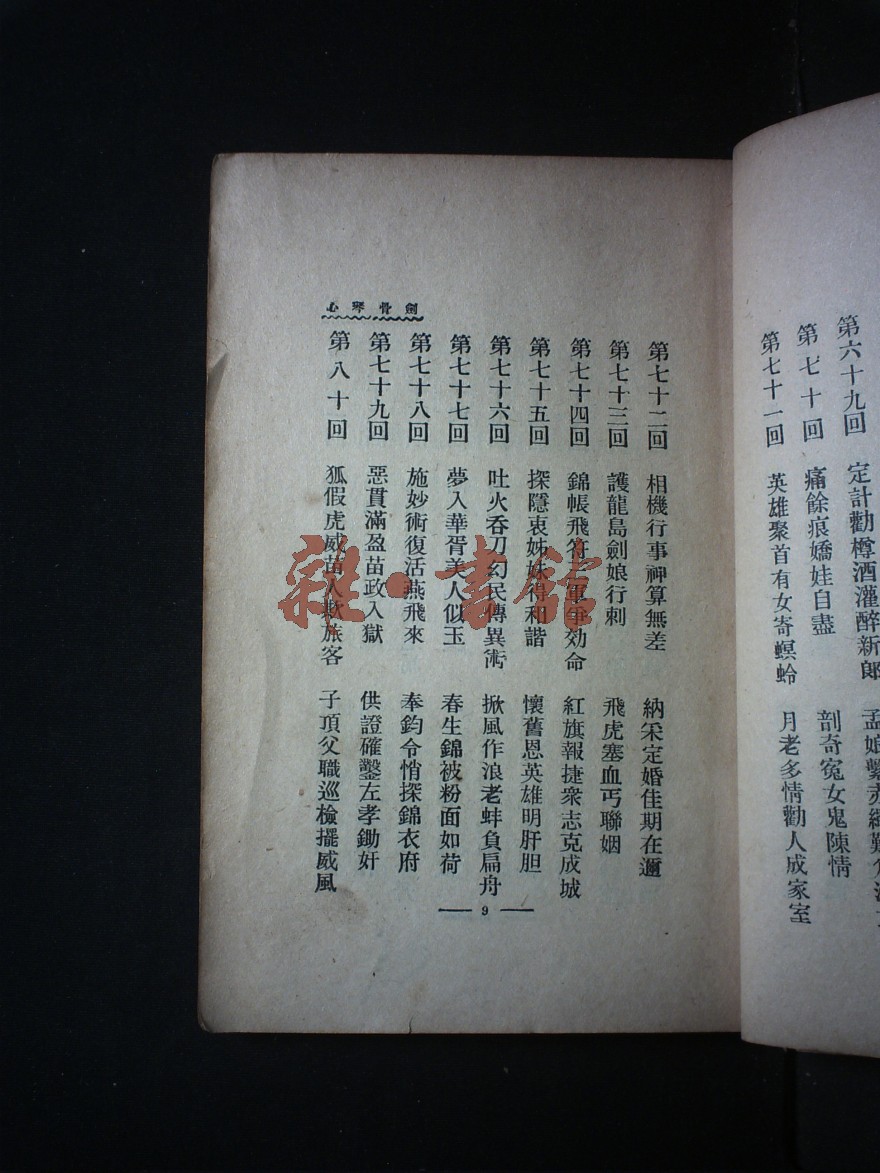 第六十九回 定計勸樽酒灌醉新郎
第七十回 痛餘痕嬌娃自盡 剖奇冤女鬼陳情
第七十一回 英雄聚首有女寄螟蛉 月老多情勸人成家室
劍骨琴心
第七十二回 相機行事神算無差 納采定婚佳期在邇
第七十三回 護龍島劍娘行刺 飛虎塞血丐聯姻
第七十四回 錦帳飛符軍爭効命 紅旗報捷衆志克成城
第七十五回 探隱衷姊妹得和諧 懷舊恩英雄明肝胆
第七十六回 吐火吞刀幻民傳異術 掀風作浪老蚌負扁舟
第七十七回 夢入華胥美人似玉 春生錦被粉面如荷
第七十八回 施妙術復活燕飛來 奉鈞令悄探錦衣府
第七十九回 惡貫滿盈苗政入獄 供證確鑿左孝鋤奸
第八十回 狐假虎威苗人欺旅客 子頂父職巡檢擺威風
9
雜·書館